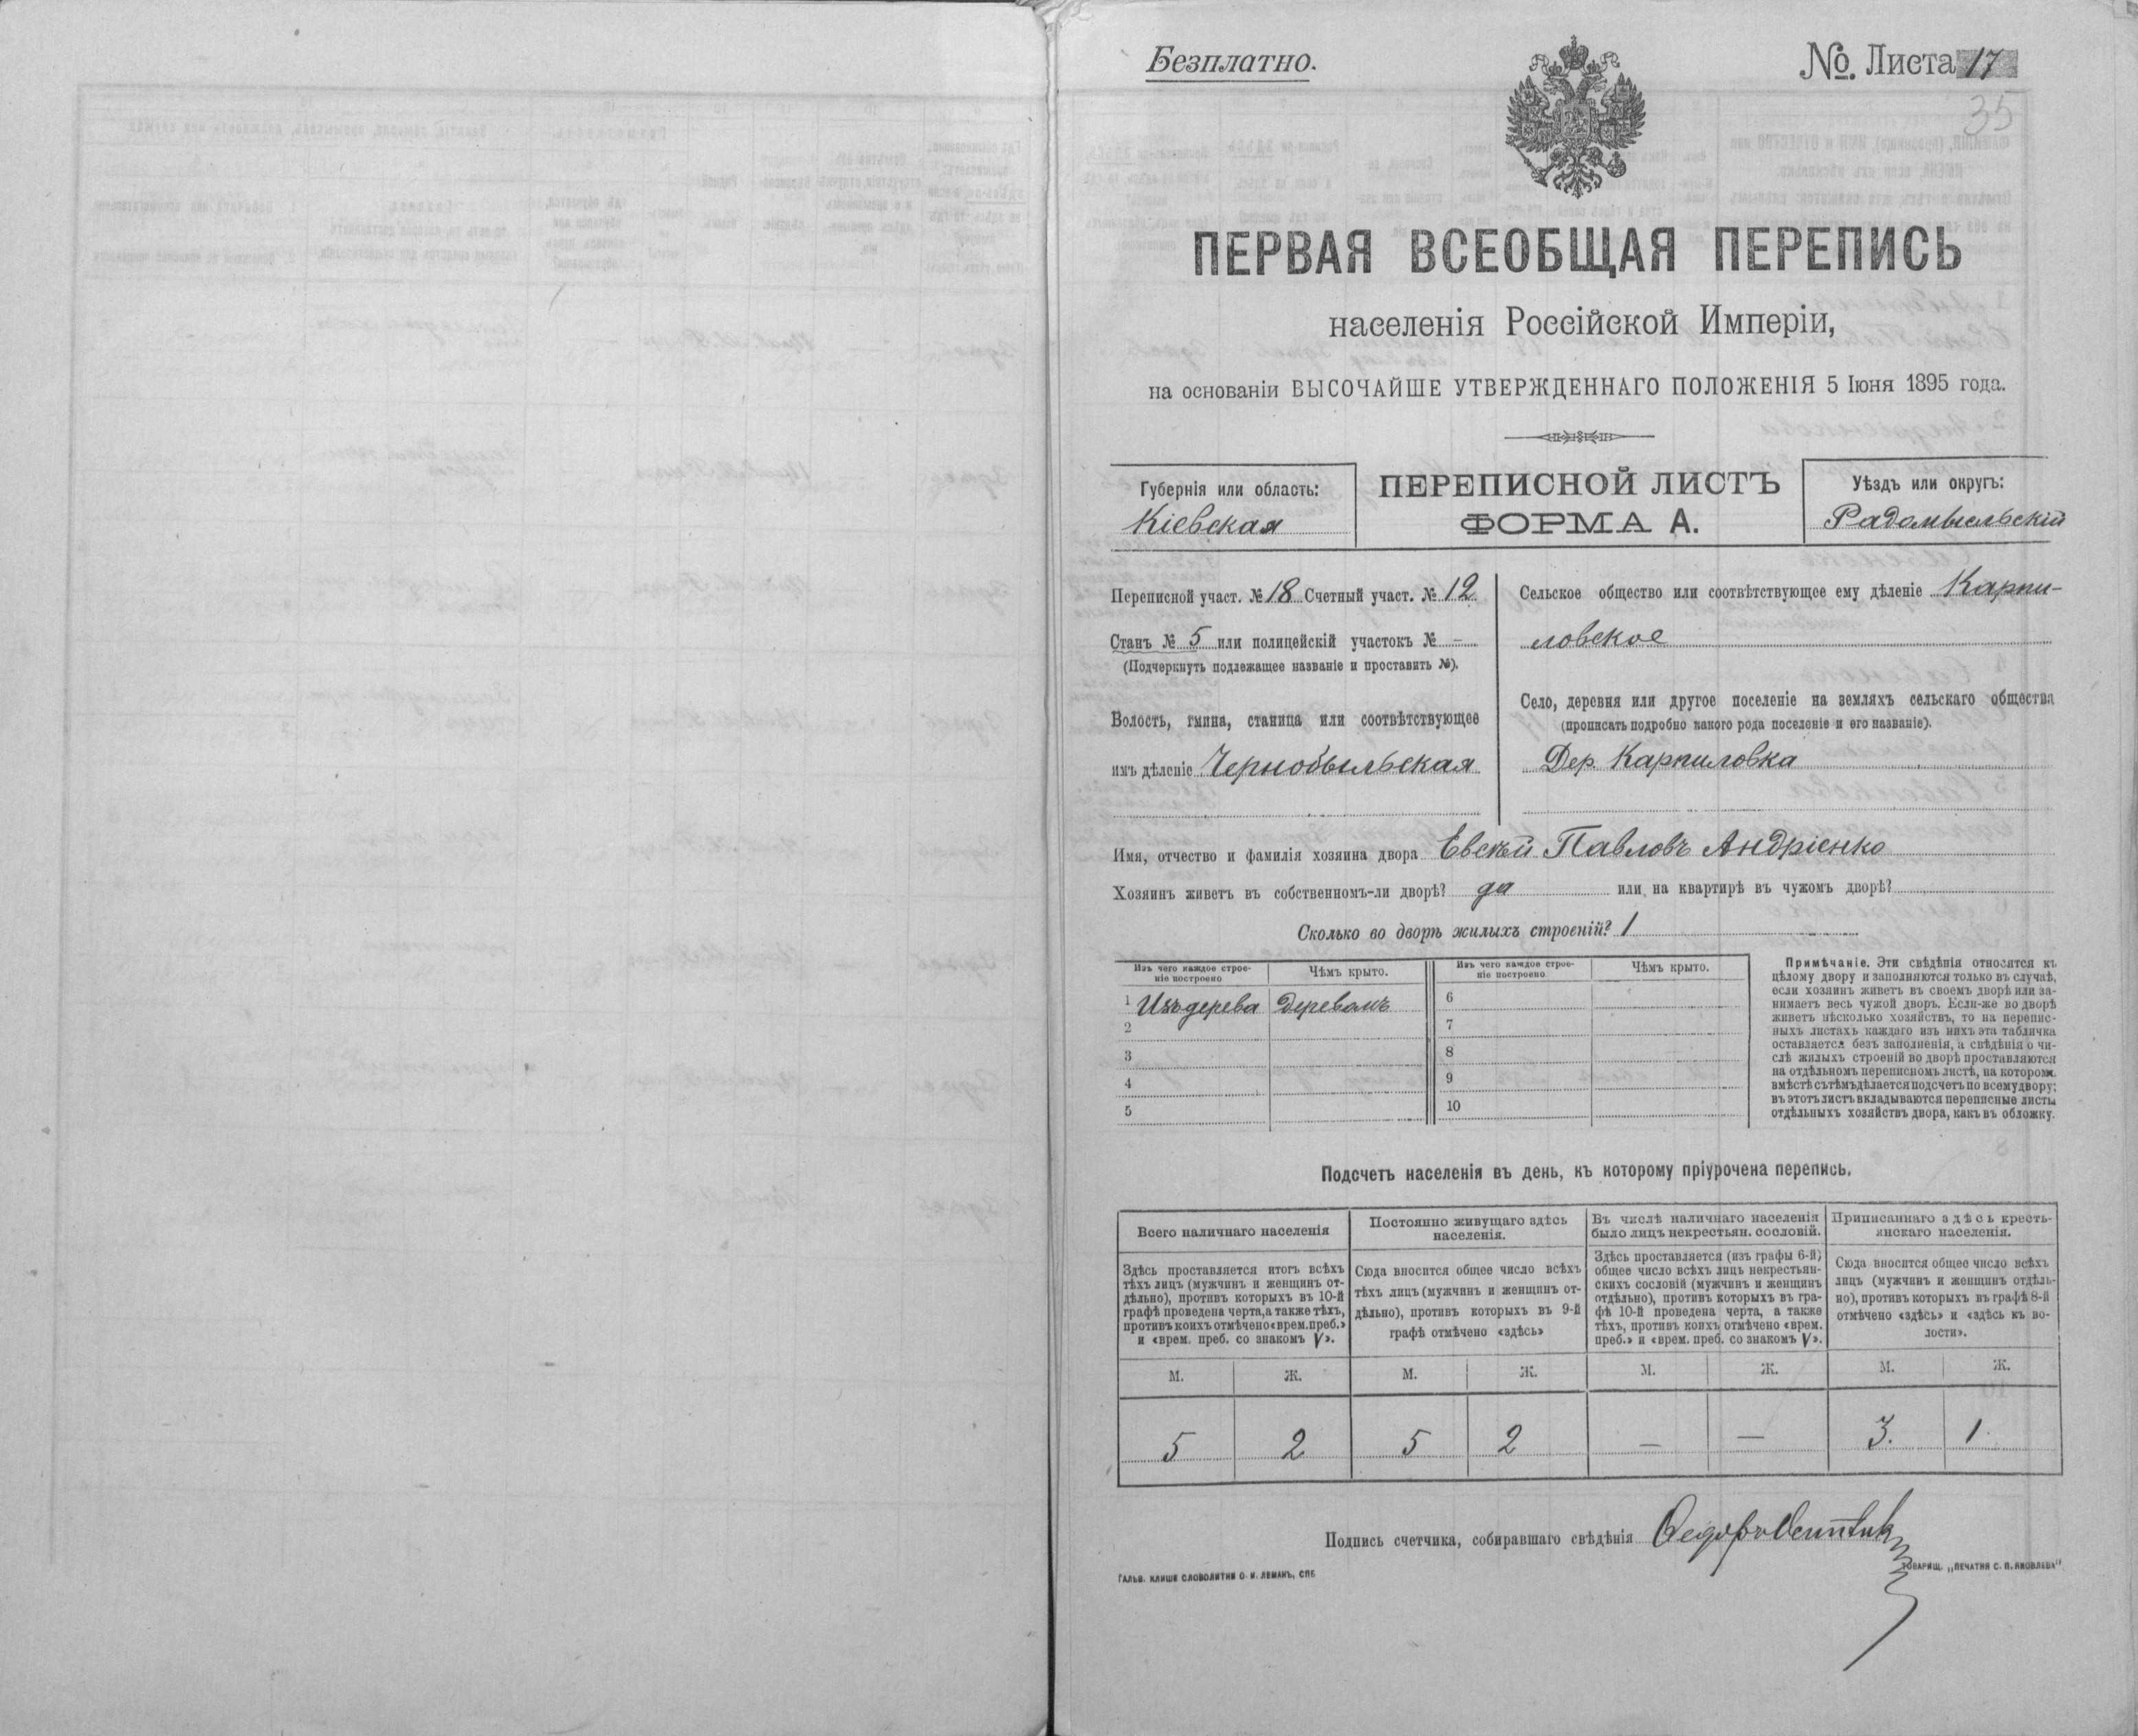 Безплатно.
№. Листа 17
35
ПЕРВАЯ ВСЕОБЩАЯ ПЕРЕПИСЬ
населенія Россійской Имперіи,
на основаніи ВЫСОЧАЙШЕ УТВЕРЖДЕННАГО ПОЛОЖЕНІЯ 5 Іюня 1895 года.
Губернія или область:
Кіевская
ПЕРЕПИСНОЙ ЛИСТЪ
ФОРМА А.
Уѣздъ или округъ:
Радомысльскій
Переписной участ. № 18 Счетный участ. № 12
Станъ № 5 или полицейскій участокъ № -
(Подчеркнуть подлежащее названіе и проставить №).
Волость, гмина, станица или соотвѣтствующее
имъ дѣленіе Чернобыльская
Сельское общество или соотвѣтствующее ему дѣленіе Карпи-
ловское
Село, деревня или другое поселеніе на земляхъ сельскаго общества
(прописать подробно какого рода поселеніе и его названіе).
Дер. Карпиловка
Имя, отчество и фамилія хозяина двора Евсѣй Павловъ Андріенко
Хозяинъ живетъ въ собственномъ-ли дворѣ? да или на квартирѣ въ чужомъ дворѣ?
Сколько во дворѣ жилыхъ строеній? 1
Изъ чего каждое строе-
ніе построено
Чѣмъ крыто.
Изъ чего каждое строе-
ніе построено
Чѣмъ крыто.
1 Изъ дерева Деревомъ
2
3
4
5
6
7
8
9
10
Примѣчаніе. Эти свѣдѣнія относятся къ
цѣлому двору и заполняются только въ случаѣ,
если хозяинъ живетъ въ своемъ дворѣ или за-
нимаетъ весь чужой дворъ. Если-же во дворѣ
живетъ нѣсколько хозяйствъ, то на перепис-
ныхъ листахъ каждаго изъ нихъ эта табличка
оставляется безъ заполненія, а свѣдѣнія о чи-
слѣ жилыхъ строеній во дворѣ проставляются
на отдѣльномъ переписномъ листѣ, на которомъ
вмѣстѣ съ тѣмъ дѣлается подсчетъ по всему двору;
въ этотъ листъ вкладываются переписные листы
отдѣльныхъ хозяйствъ двора, какъ въ обложку.
Подсчетъ населенія въ день, къ которому пріурочена перепись.
Всего наличнаго населенія
Постоянно живущаго здѣсь
населенія.
Въ числѣ наличнаго населенія
было лицъ некрестьян. сословій.
Приписаннаго здѣсь кресть-
янскаго населенія.
Здѣсь проставляется итогъ всѣхъ
тѣхъ лицъ (мужчинъ и женщинъ от-
дѣльно), противъ которыхъ въ 10-й
графѣ проведена черта, а также тѣхъ,
противъ коихъ отмѣчено «врем. преб.»
и «врем. преб. со знакомъ V».
Сюда вносится общее число всѣхъ
тѣхъ лицъ (мужчинъ и женщинъ от-
дѣльно), противъ которыхъ въ 9-й
графѣ отмѣчено «здѣсь»
Здѣсь проставляется (изъ графы 6-й)
общее число всѣхъ лицъ некрестьян-
скихъ сословій (мужчинъ и женщинъ
отдѣльно), противъ которыхъ въ гра-
фѣ 10-й проведена черта, а также
тѣхъ, противъ коихъ отмѣчено «врем.
преб.» и «врем. преб. со знакомъ V».
Сюда вносится общее число всѣхъ
лицъ (мужчинъ и женщинъ отдѣль-
но), противъ которыхъ въ графѣ 8-й
отмѣчено «здѣсь» и «здѣсь къ во-
лости».
М. Ж. М. Ж. М. Ж. М. Ж.
5 2 5 2 — — 3. 1
Подпись счетчика, собиравшаго свѣдѣнія
ГАЛЬВ. КЛИШЕ СЛОВОЛИТНИ О. И. ЛЕМАНЪ, СПБ
ТОВАРИЩ. „ПЕЧАТНЯ С. П. ЯКОВЛЕВА"